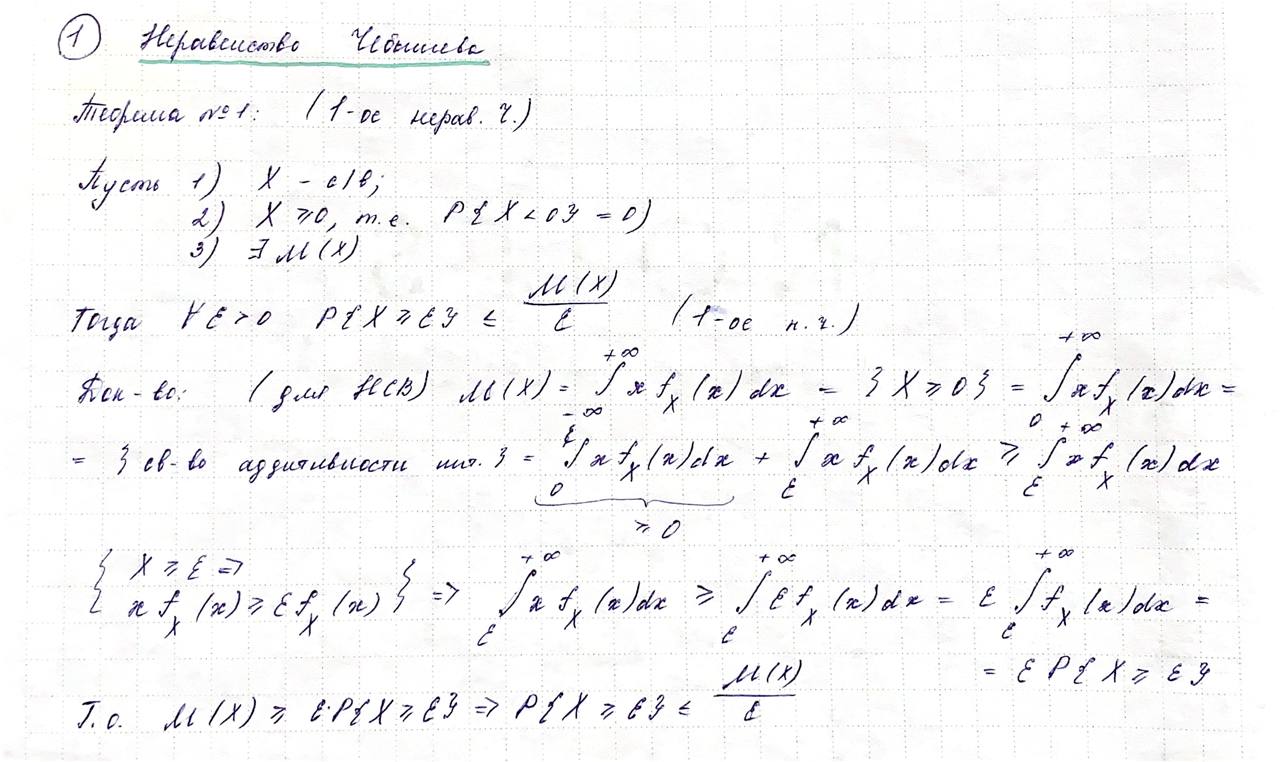 ① Неравенство Чебышева
Теорема №1: (1-ое нерав. Ч.)
Пусть 1) X - с/в;
2) X ≥ 0, т.е. P{X < 0} = 0)
3) ∃ M(X)
Тогда ∀ ε > 0 P{X ≥ ε} ≤ M(X)/ε (1-ое н.ч.)
Док-во: (для НСВ) M(X) = ∫_{-∞}^{+∞} x f_X(x) dx = {X ≥ 0} = ∫_0^{+∞} x f_X(x) dx =
= {св-во аддитивности инт.} = ∫_0^ε x f_X(x) dx + ∫_ε^{+∞} x f_X(x) dx ≥ ∫_ε^{+∞} x f_X(x) dx
≥ 0
{ X ≥ ε =>
x f_X(x) ≥ ε f_X(x) } => ∫_ε^{+∞} x f_X(x) dx ≥ ∫_ε^{+∞} ε f_X(x) dx = ε ∫_ε^{+∞} f_X(x) dx =
= ε P{X ≥ ε}
Т.о. M(X) ≥ ε·P{X ≥ ε} => P{X ≥ ε} ≤ M(X)/ε